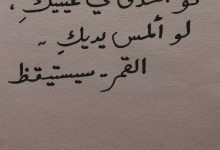 لو أحدق في عينيكِ ،
لو ألمس يديكِ ..
القمر - سيستيقظ